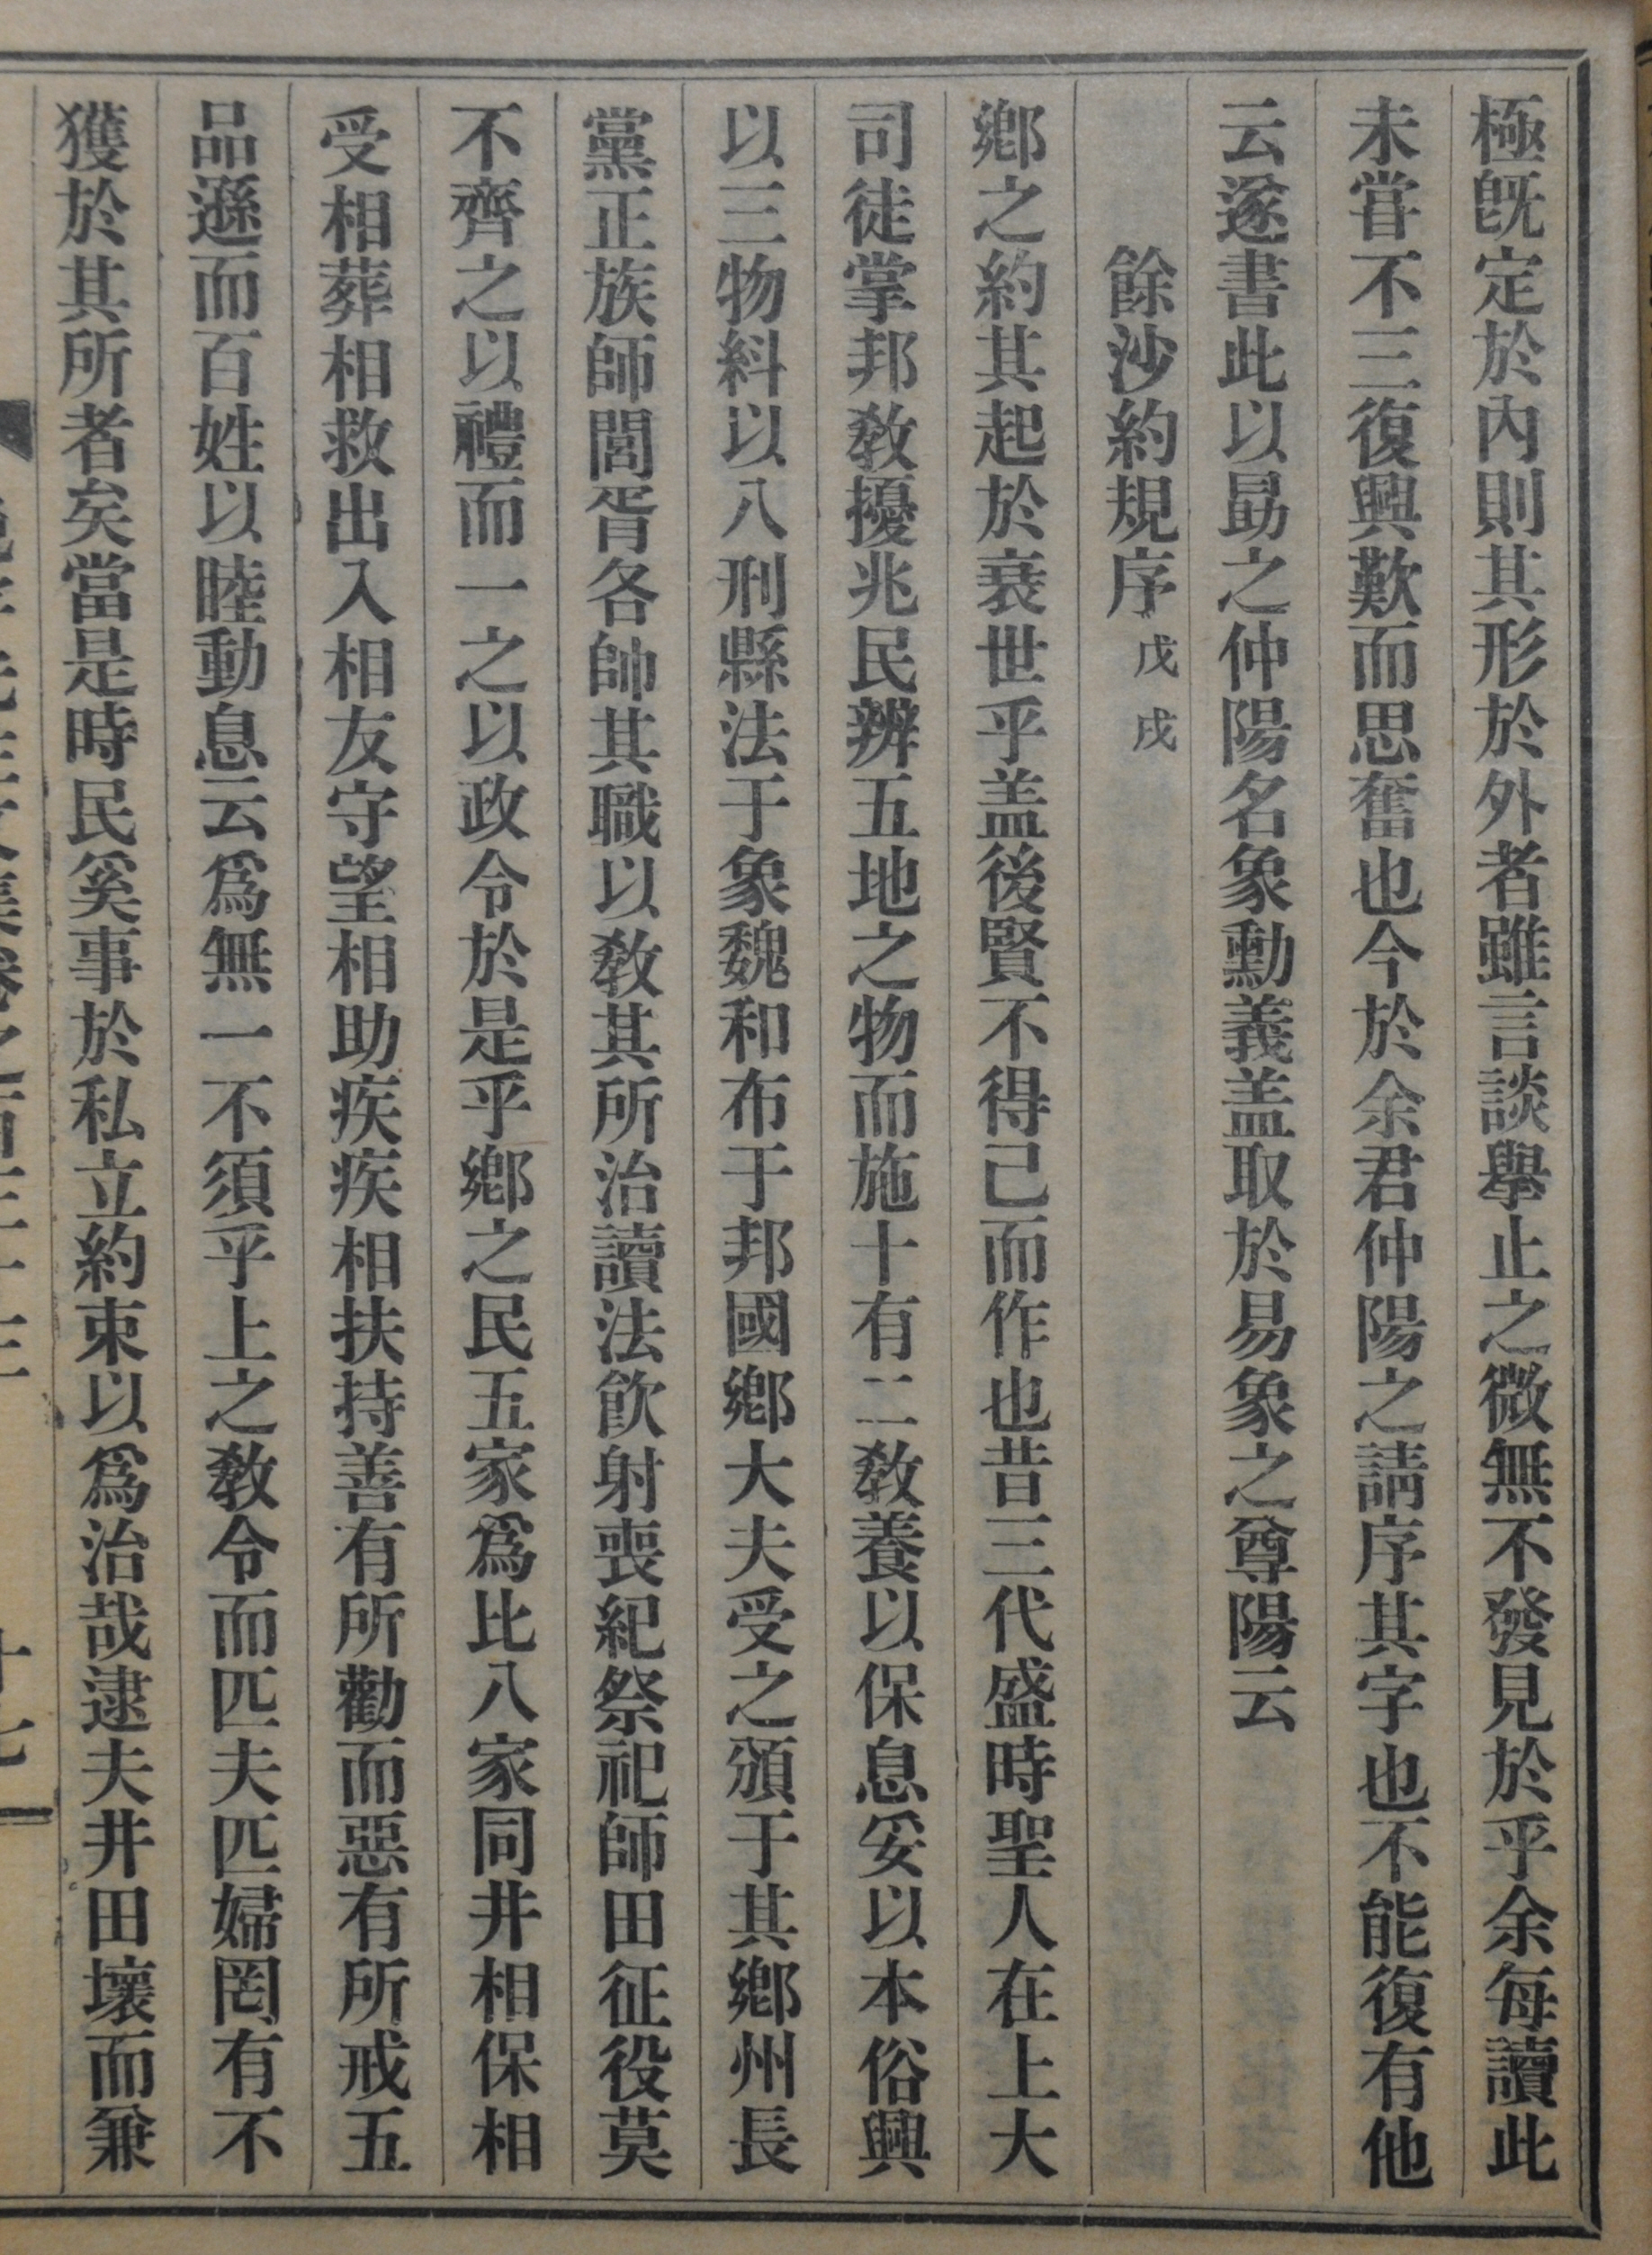 極旣定於內則其形於外者雖言談擧止之微無不發見於乎余每讀此
未甞不三復興歎而思奮也今於余君仲陽之請序其字也不能復有他
云遂書此以勗之仲陽名象勳義盖取於易象之尊陽云
餘沙約規序 戊戌
鄕之約其起於衰世乎盖後賢不得已而作也昔三代盛時聖人在上大
司徒掌邦敎擾兆民辨五地之物而施十有二敎養以保息妥以本俗興
以三物糾以八刑縣法于象魏和布于邦國鄕大夫受之頒于其鄕州長
黨正族師閭胥各帥其職以敎其所治讀法飮射喪紀祭祀師田征役莫
不齊之以禮而一之以政令於是乎鄕之民五家爲比八家同井相保相
受相葬相救出入相友守望相助疾疾相扶持善有所勸而惡有所戒五
品遜而百姓以睦動息云爲無一不須乎上之敎令而匹夫匹婦罔有不
獲於其所者矣當是時民奚事於私立約束以爲治哉逮夫井田壞而兼